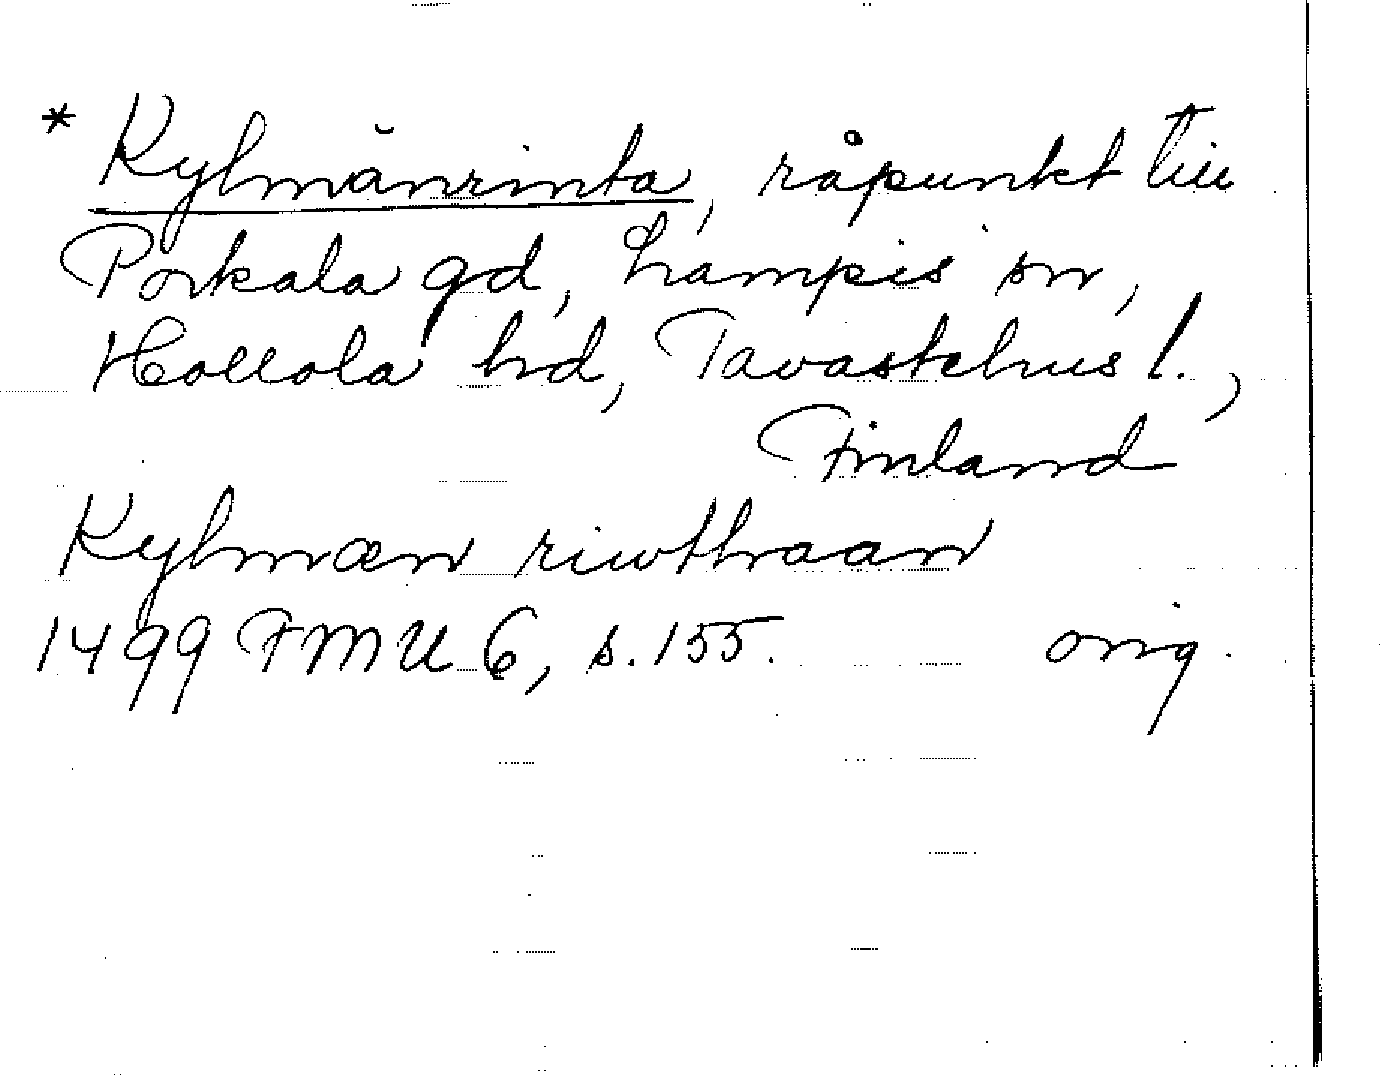 * Kylmänrinta, råpunkt till
Porkala gd, Lampis sn,
Hollola hd, Tavastehus l.,
Finland
Kylmæn riwthaan
1499 FMU 6, s. 155. orig.